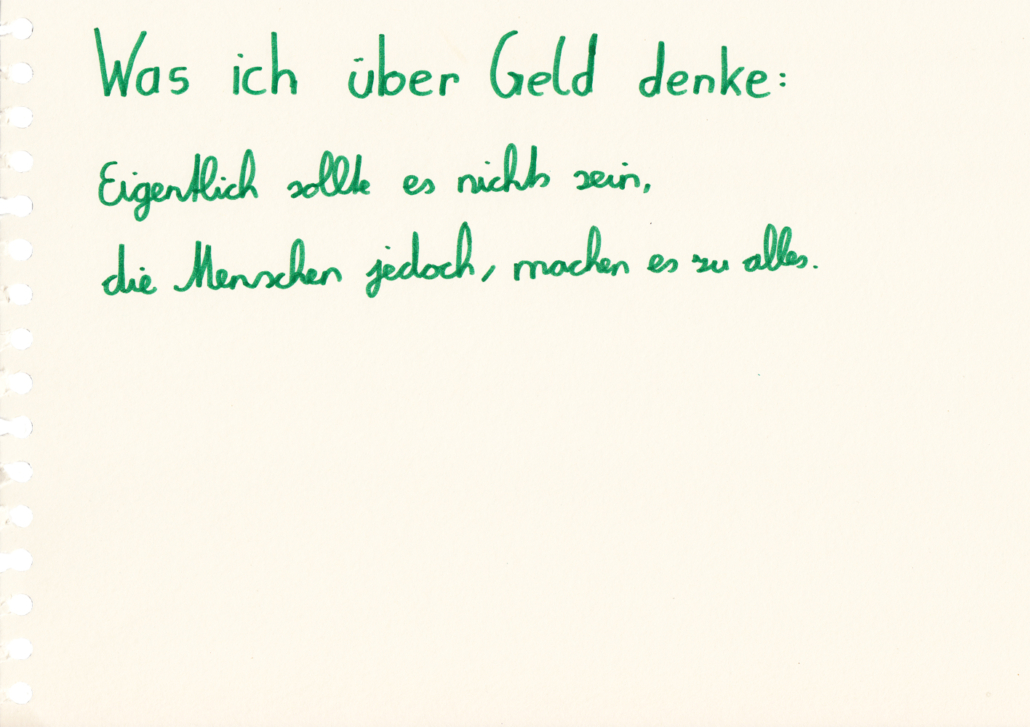 Was ich über Geld denke:
Eigentlich sollte es nichts sein,
die Menschen jedoch, machen es zu alles.